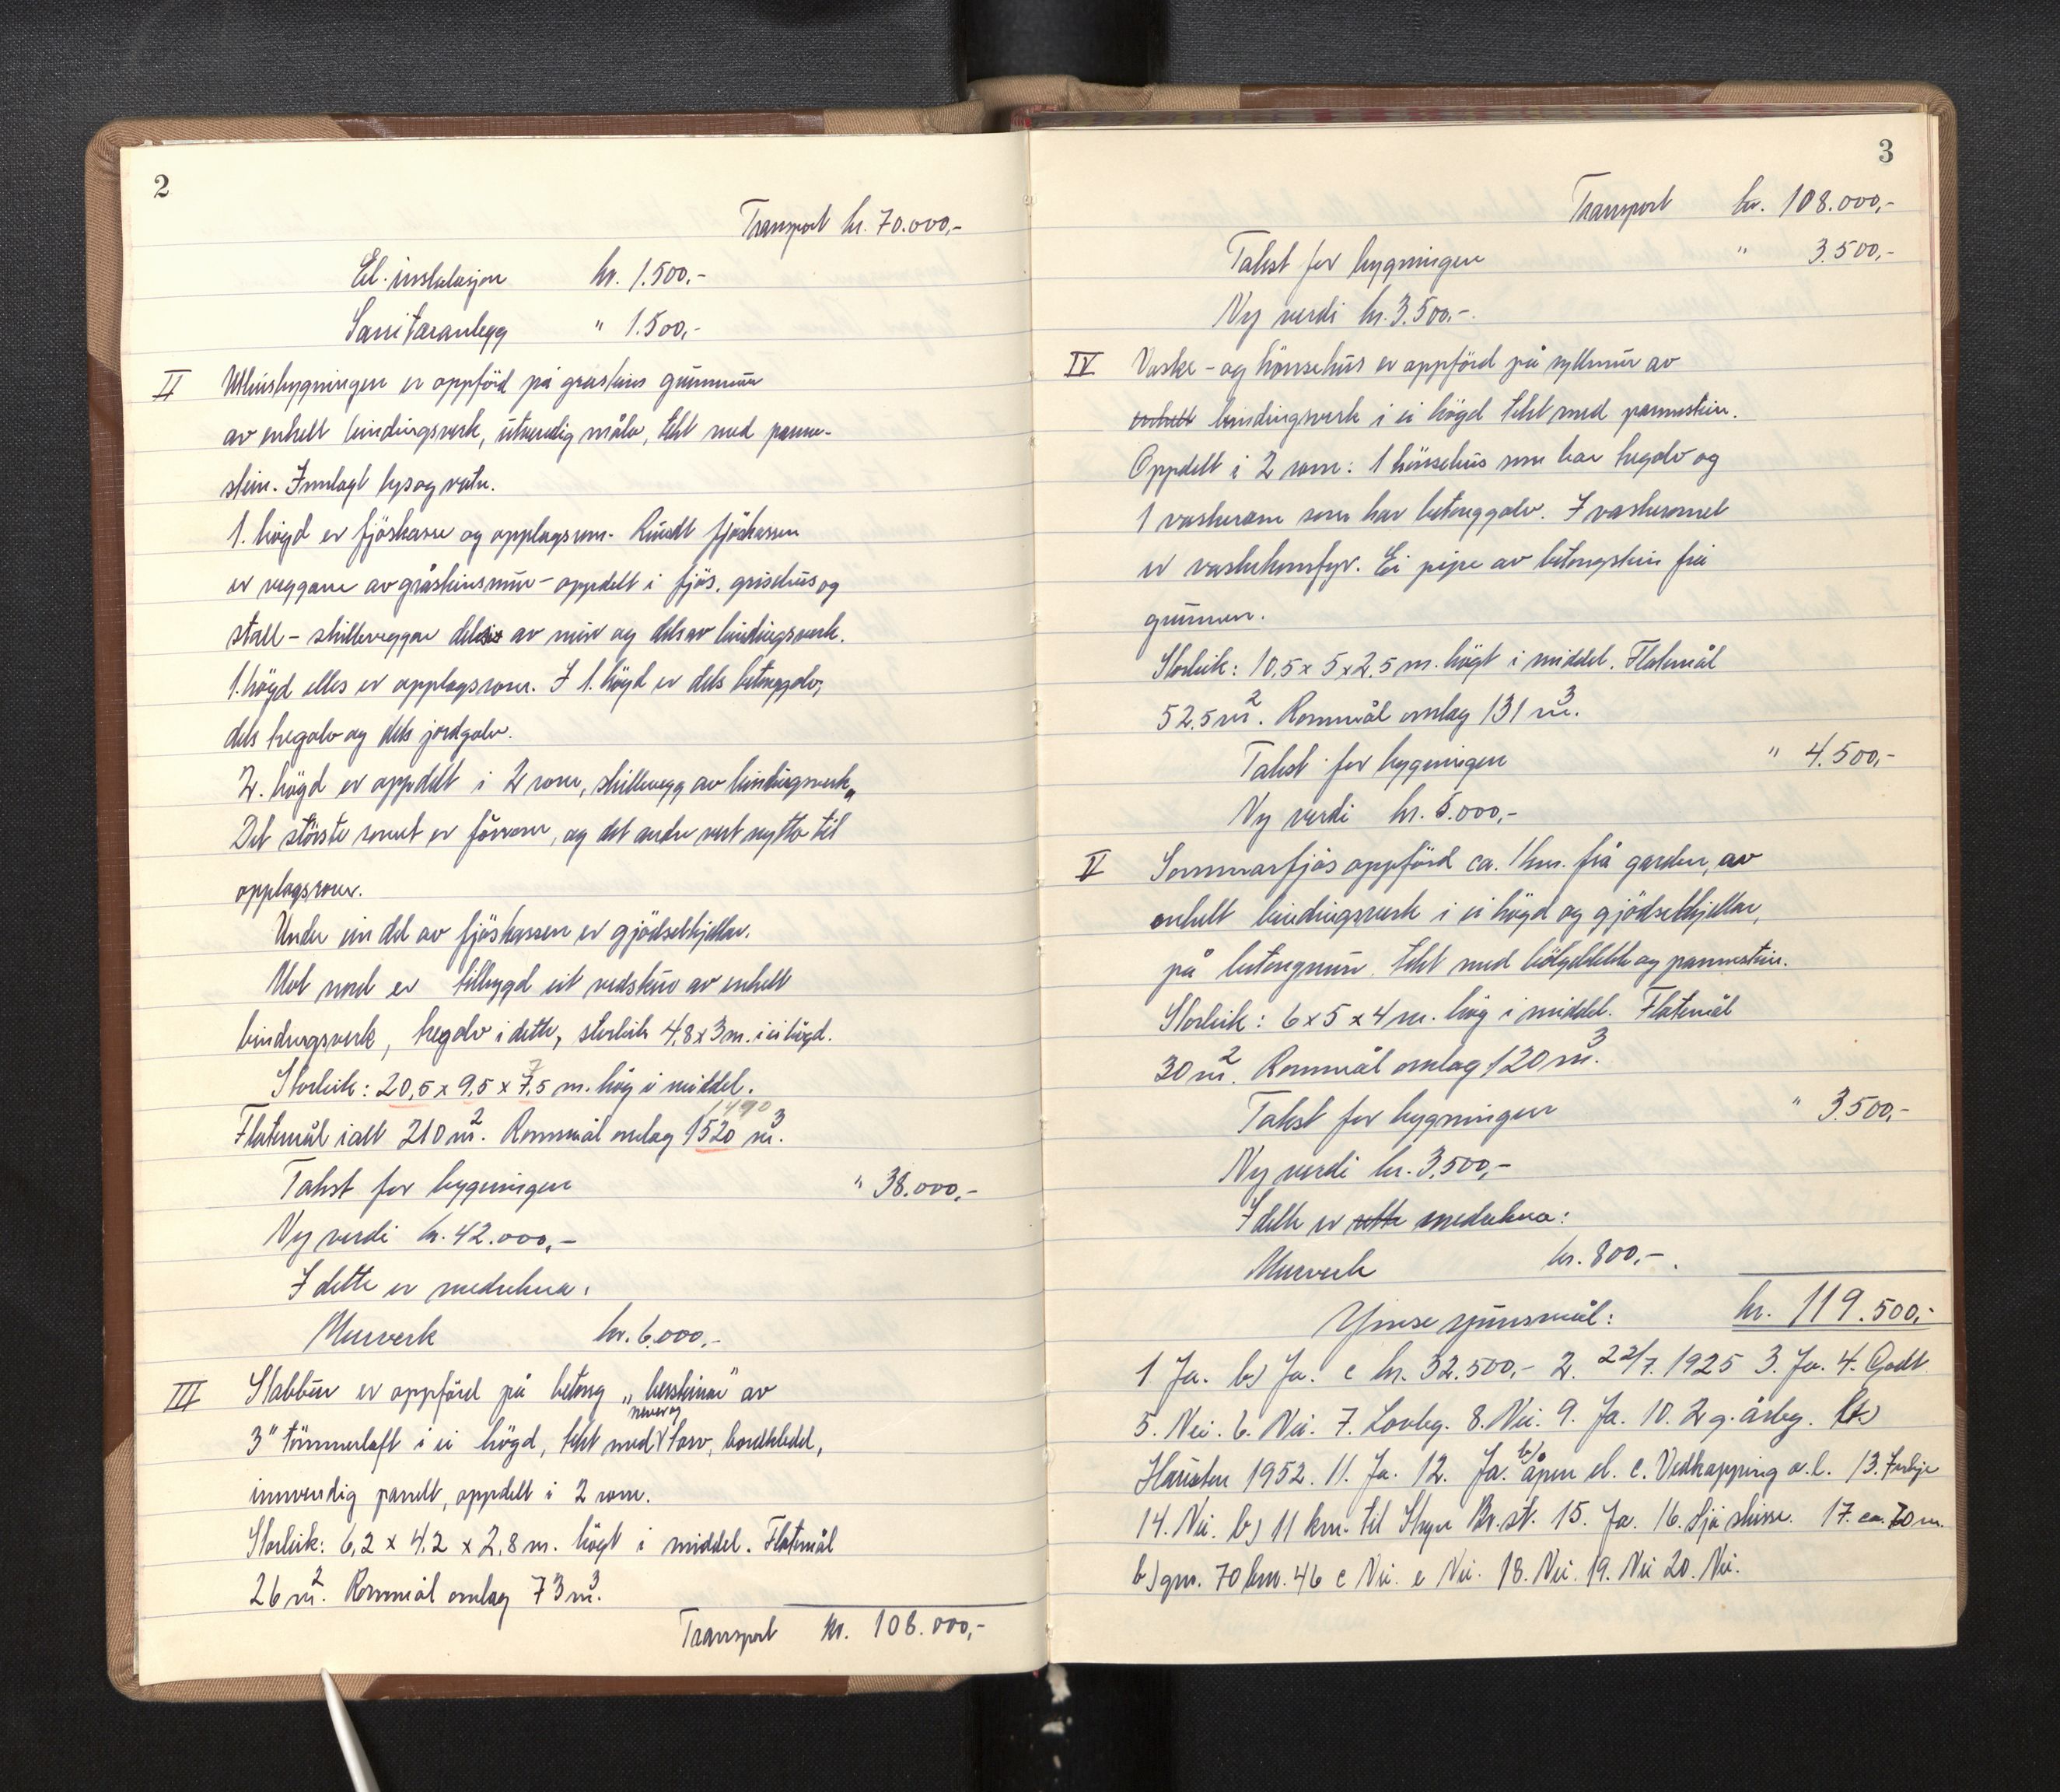 2
Transport kr. 70.000,-
El. instalasjon kr. 1.500,-
Sanitæranlegg " 1.500,-
II Uthusbygningen er oppförd på gråsteins grunnmur
av enkelt bindingsverk, utvendig måla, tekt med panne-
stein. Innlagt lys og vatn.
1. högd er fjöskasse og opplagsrom. Rundt fjöskassen
er veggane av gråsteinsmur - oppdelt i fjös, grisehus og
stall - skilleveggar dels av mur og dels av bindingsverk.
1. högd elles er opplagsrom. I 1. högd er dels betonggolv,
dels tregolv og dels jordgolv.
2. högd er oppdelt i 2 rom, skillevegg av bindingsverk.
Det störste romet er förrom, og det andre vert nytta til
opplagsrom.
Under ein del av fjöskassen er gjödselkjellar.
Mot nord er tilbygd eit vedskur av enkelt
bindingsverk, tregolv i dette, storleik 4,8 x 3 m. i ei högd.
7
Storleik: 20,5 x 9,5 x 7,5 m. hög i middel.
1490
Flatemål ialt 210 m². Rommål omlag 1520 m³.
Takst for bygningen " 38.000,-
Ny verdi kr. 42.000,-
I dette er medrekna:
Murverk kr. 6.000,-
III Stabbur er oppförd på betong "beisteinar" av
never og
3" tömmerlaft i ei högd, tekt med torv, bordkledd,
innvendig panelt, oppdelt i 2 rom.
Storleik: 6,2 x 4,2 x 2,8 m. högt i middel. Flatemål
26 m². Rommål omlag 73 m³.
Transport kr. 108.000,-
3
Transport kr. 108.000,-
Takst for bygningen " 3.500,-
Ny verdi kr. 3.500,-.
IV Vaske- og hönsehus er oppförd på syllmur av
enkelt bindingsverk i ei högd tekt med pannestein.
Oppdelt i 2 rom: 1 hönsehus som har tregolv og
1 vaskerom som har betonggolv. I vaskeromet
er vaskekomfyr. Ei pipe av betongstein frå
grunnen.
Storleik: 10,5 x 5 x 2,5 m. högt i middel. Flatemål
52,5 m². Rommål omlag 131 m³.
Takst for bygningen " 4.500,-
Ny verdi kr. 5.000,-
V Sommarfjös oppförd ca. 1 km. frå garden, av
enkelt bindingsverk i ei högd og gjödselkjellar,
på betongmur, tekt med bölgeblekk og pannestein.
Storleik: 6 x 5 x 4 m. hög i middel. Flatemål
30 m². Rommål omlag 120 m³.
Takst for bygningen " 3.500,-
Ny verdi kr. 3.500,-
I dette er medrekna:
Murverk kr. 800,-.
Ymse spursmål: kr. 119.500,-
1 Ja. b) Ja. c kr. 32.500,- 2. 22/7. 1925 3. Ja. 4. Godt
5. Nei. 6. Nei. 7. Lovleg. 8. Nei. 9. Ja. 10. 2 g. årleg. b)
Hausten 1952. 11. Ja. 12. Ja. b) åpen el. c. Vedkapping o.l. 13.
14. Nei. b) 11 km. til Stryn Br.st. 15. Ja. 16. Sjå skisse. 17. ca. 70 m.
b) gnr. 70 bnr. 46 c Nei. e Nei. 18. Nei. 19. Nei 20. Nei.